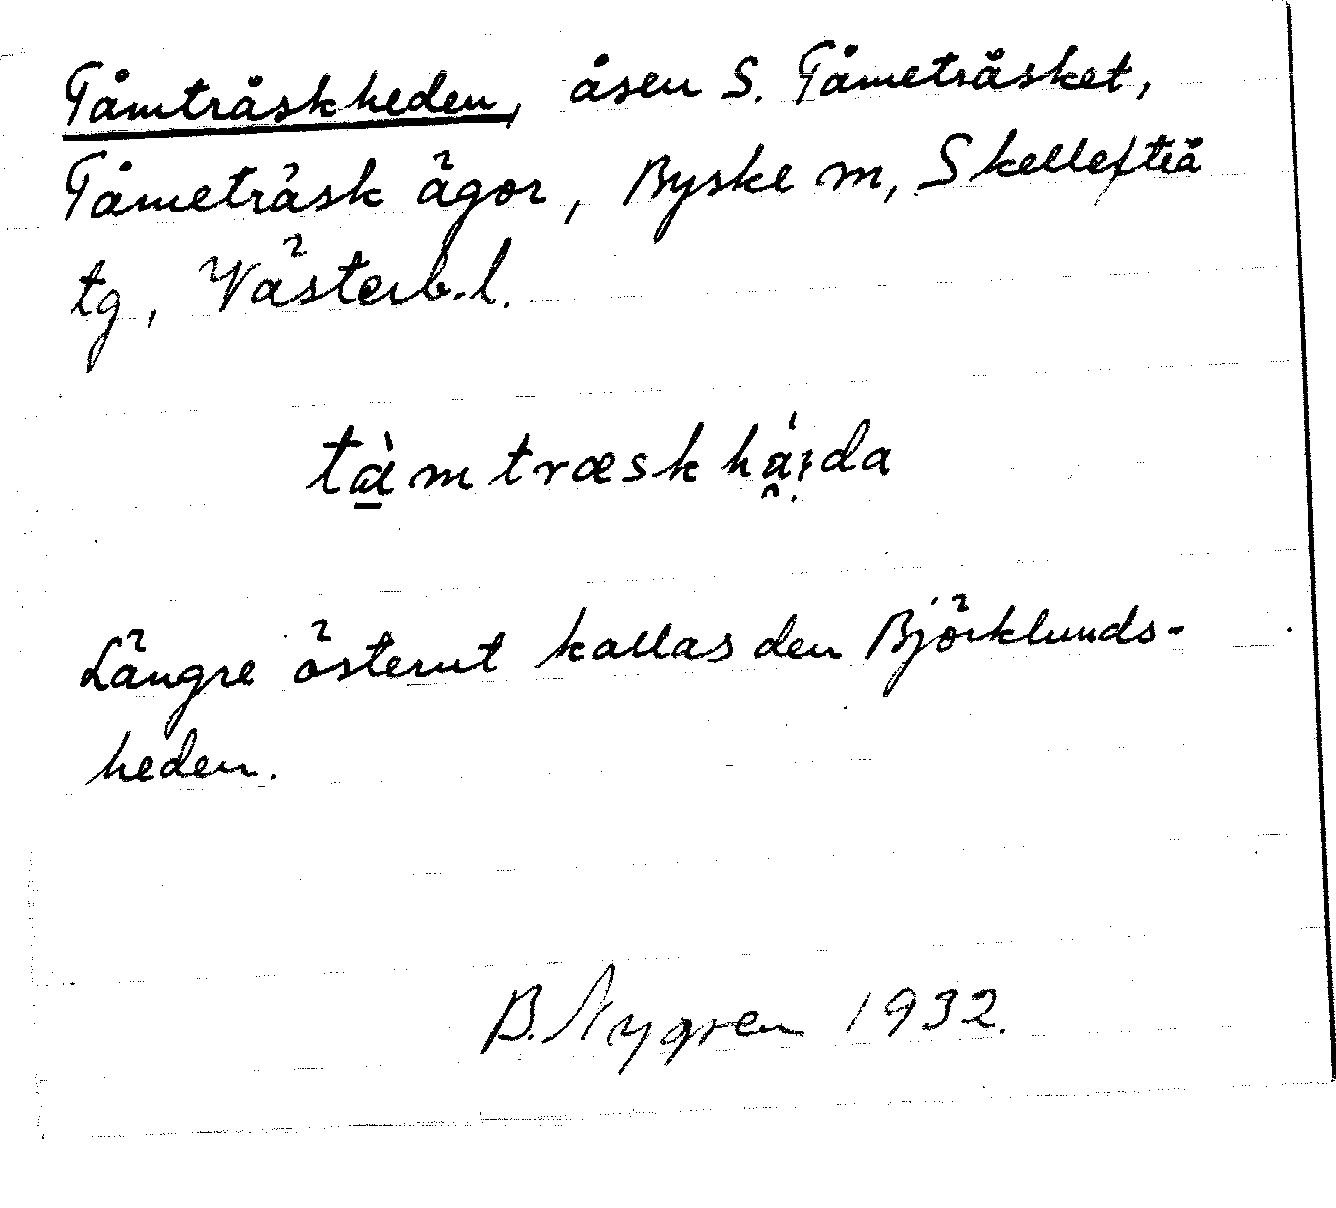 Tåmträskheden, åsen S. Tåmeträsket,
Tåmeträsk ägor, Byske sn, Skellefteå
tg, Västerb.l.
tà̱mtræskhá̯i̯da
Längre österut kallas den Björklunds-
heden.
B. Nygren 1932.